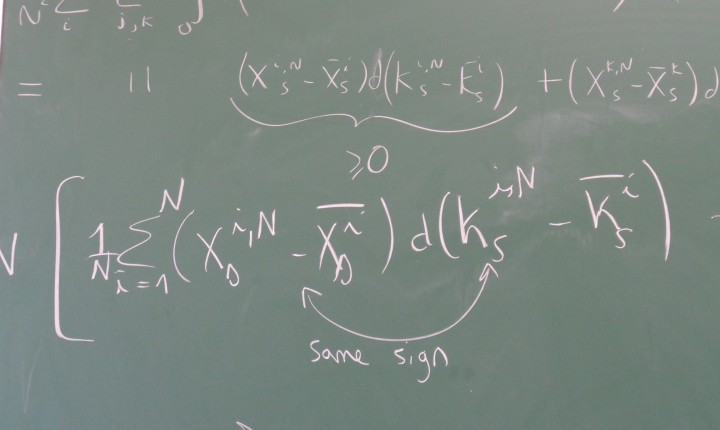 N² ∑_i ∑_{j,k} ∫_0
= 11 (X_s^{i,N} - X̄_s^i) d(k_s^{i,N} - k̄_s^i) + (X_s^{k,N} - X̄_s^k) d
≥0
N [ 1/N ∑_{i=1}^N (X_s^{i,N} - X̄_s^i) d(k_s^{i,N} - k̄_s^i) -
same sign